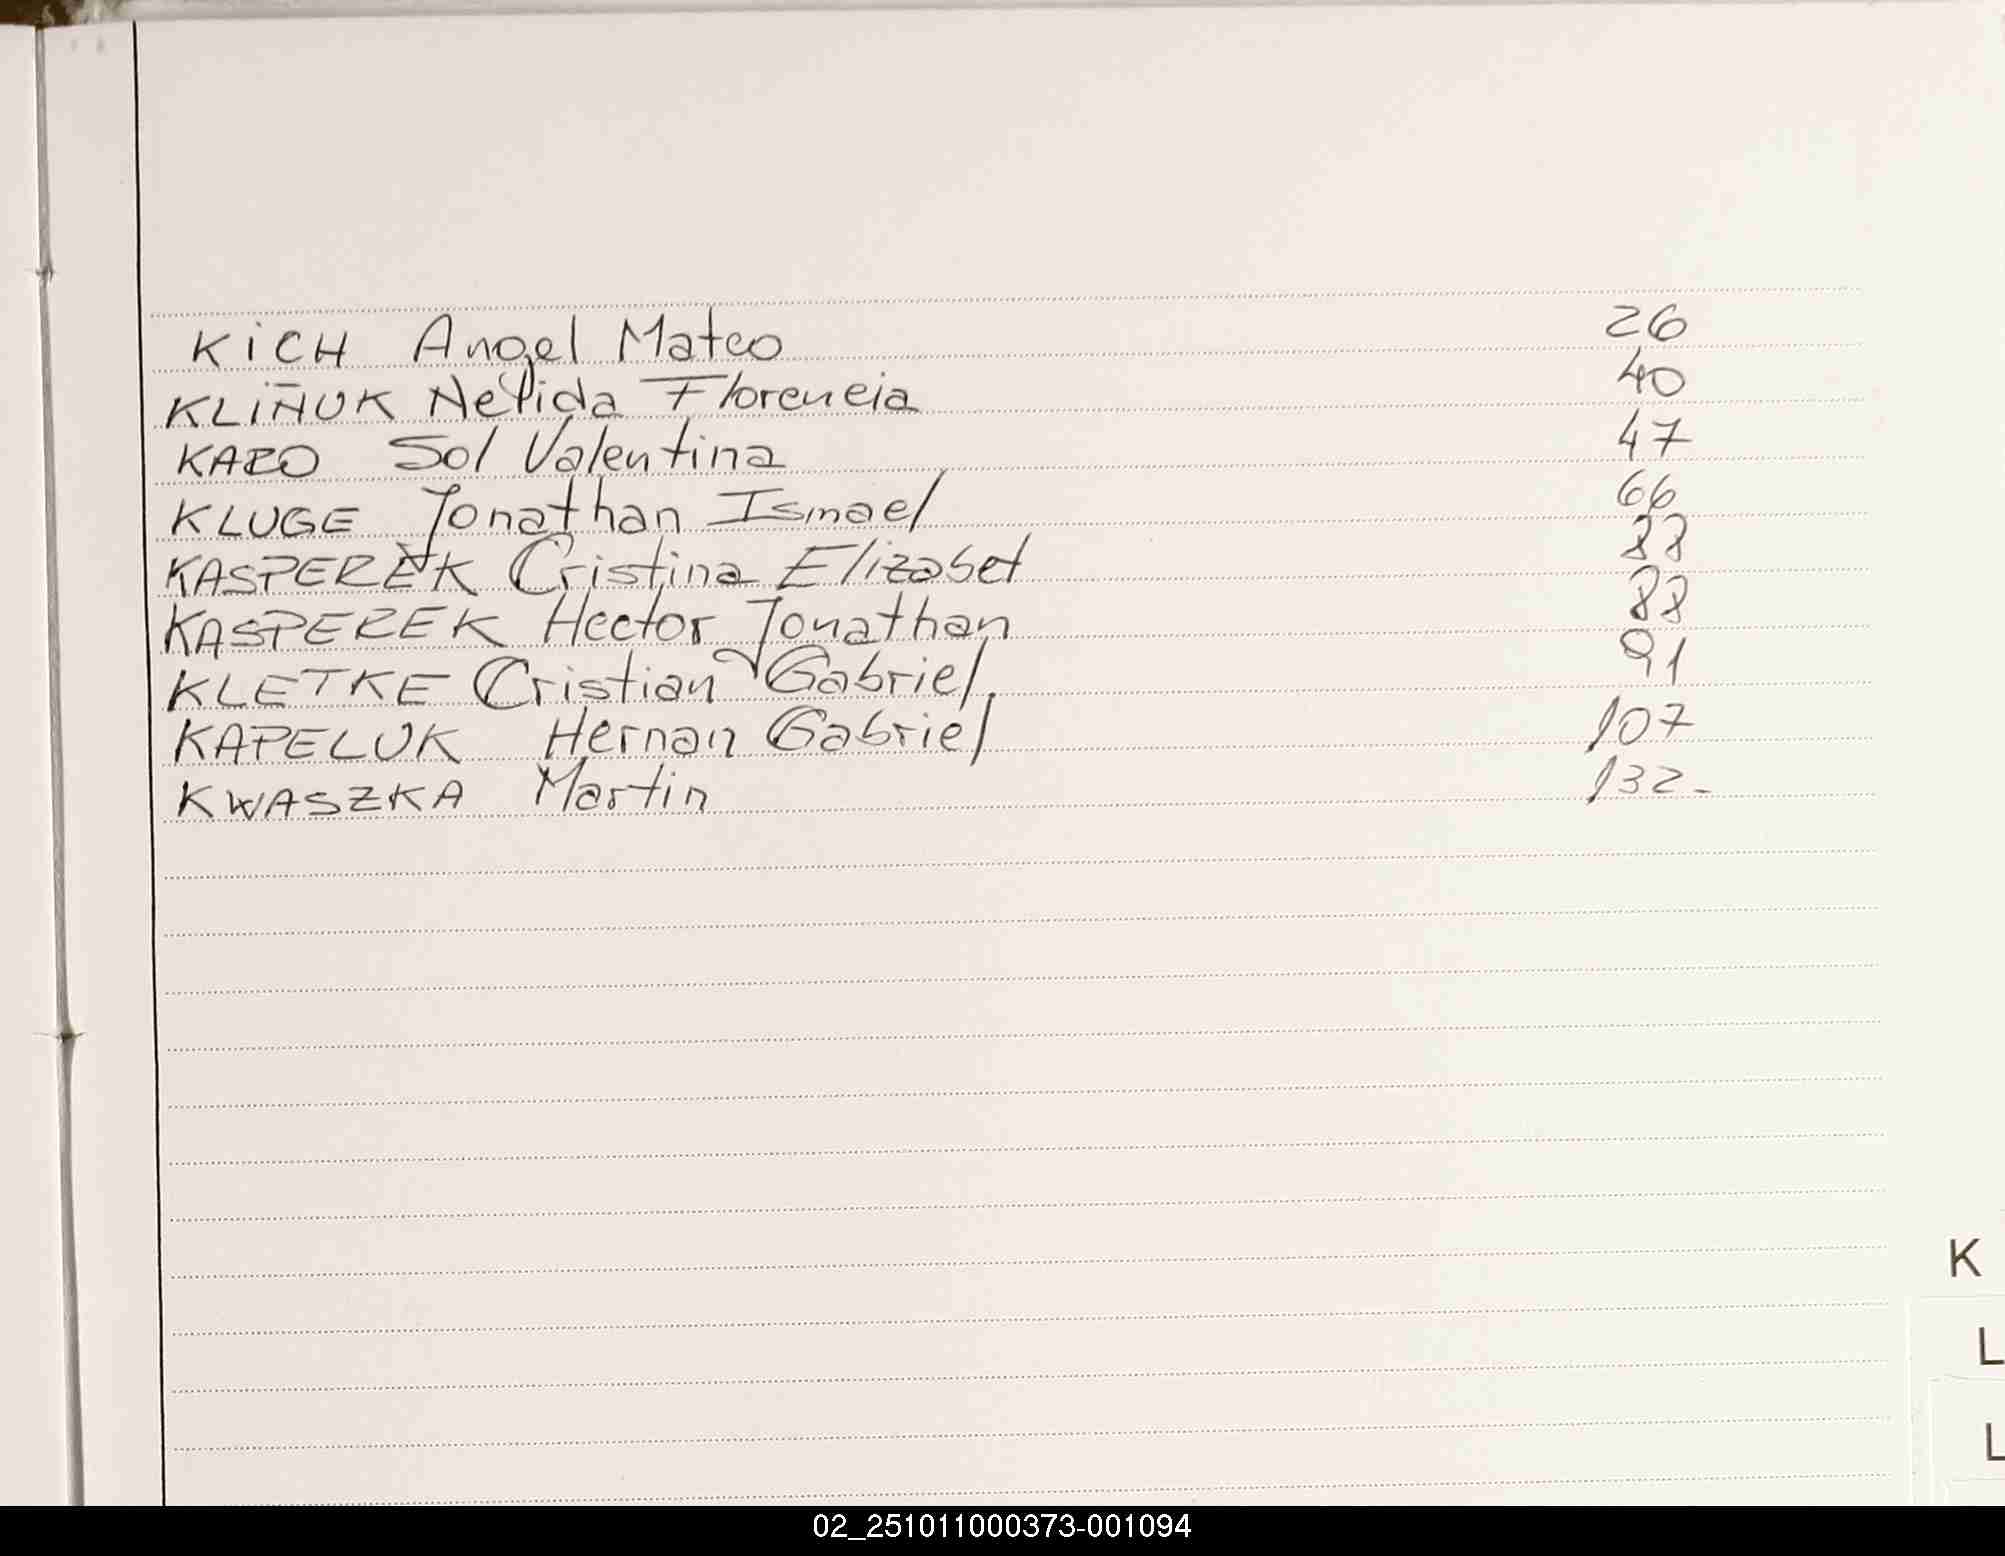 KiCH Angel Mateo 26
KLIÑUK Nelida Florencia 40
KARO Sol Valentina 47
KLUGE Jonathan Ismael 66
KASPEREK Cristina Elizabet 88
KASPEREK Hector Jonathan 88
KLETKE Cristian Gabriel. 91
KAPELUK Hernan Gabriel 107
KWASZKA Martin 132-
K
L
L
02_251011000373-001094